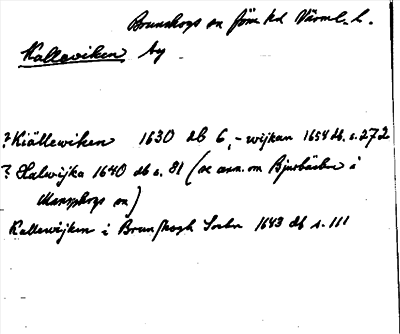 Brunskogs sn Jösse hd Värml. l.
Kalleviken by
? Kiällewiken 1630 db 6, -wijkan 1654 db. s. 272
? Halwijka 1640 db s. 81 (se anm. om Bjurbäcken i
Mangskogs sn)
Kallewijken i Brunskogh Sochn 1643 db s. 111